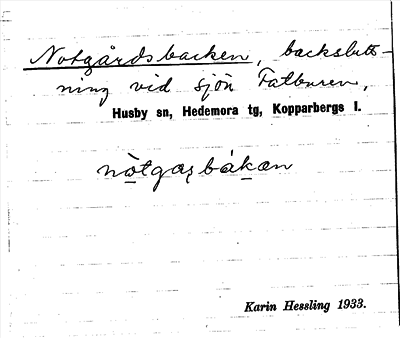 Notgårdsbacken, backslutt-
ning vid sjön Fatburen,
Husby sn, Hedemora tg, Kopparbergs l.
nòtgaṣbàkan
Karin Hessling 1933.